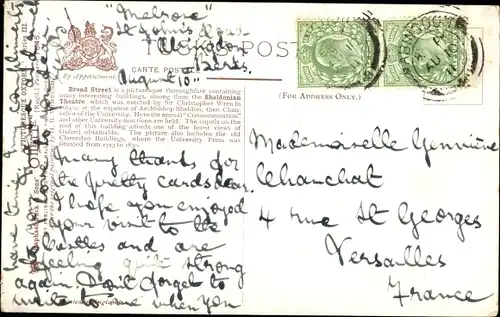 "Melrose"
St John's Road
Abingdon
Berks.
August 10th
POST
CARTE POSTALE
By Appointment.
(FOR ADDRESS ONLY.)
Broad Street is a picturesque thoroughfare containing
many interesting buildings, among them the Sheldonian
Theatre which was erected by Sir Christopher Wren in
at the expense of Archbishop Sheldon, then Chan-
cellor of the University. Here the annual "Commemoration"
and other University functions are held. The cupola on the
roof of this building affords one of the finest views of
Oxford obtainable. The picture also includes the old
Clarendon Buildings, where the University Press was
situated from 1713 to 1830.
Many thanks for
the pretty cards dear.
I hope you enjoyed
your visit to the
castles and are
feeling quite strong
again. Don't forget to
write to me when you
have time
Mademoiselle Geneviève
Chanchat
4 rue St Georges
Versailles
France
ABINGDON